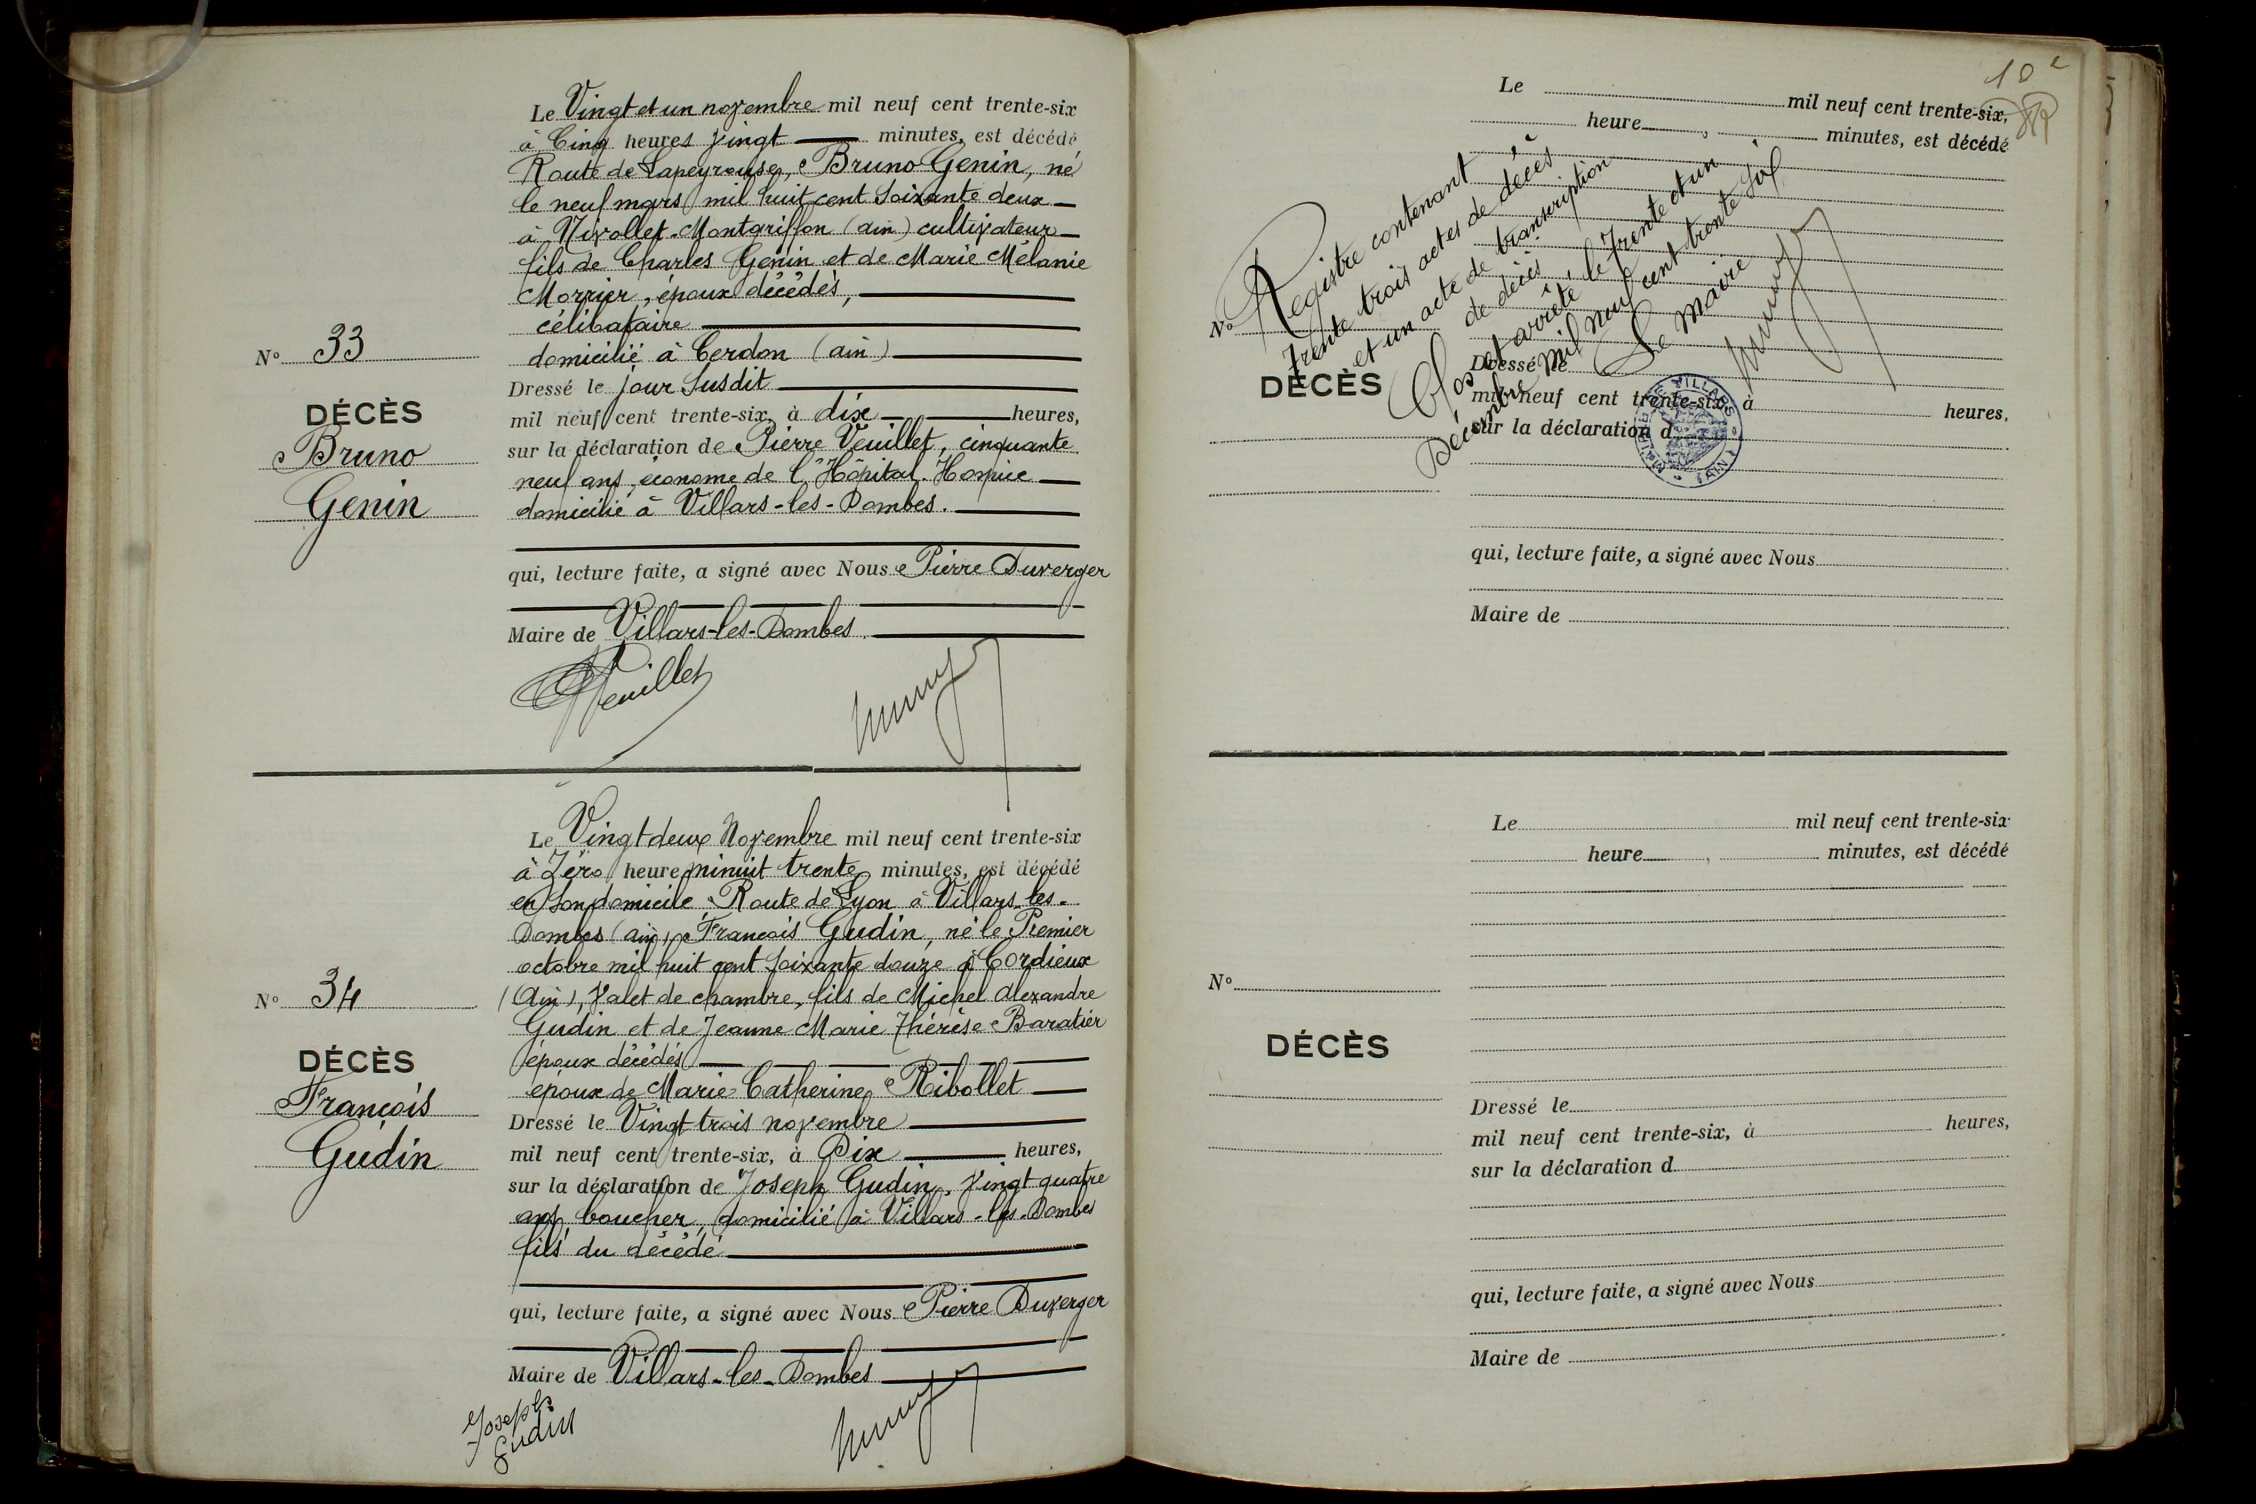 Le Vingt et un novembre mil neuf cent trente-six
à Cinq heures vingt minutes, est décédé
Route de Lapeyrouse, Bruno Genin, né
le neuf mars mil huit cent soixante deux
à Nivollet-Montgriffon (ain) cultivateur
fils de Charles Genin et de Marie Mélanie
Morrier, époux décédés,
célibataire
domicilié à Cerdon (ain)
Dressé le jour susdit
mil neuf cent trente-six, à dix heures,
sur la déclaration de Pierre Veuillet, cinquante
neuf ans, économe de l'Hôpital-Hospice
domicilié à Villars-les-Dombes.
qui, lecture faite, a signé avec Nous Pierre Duverger
Maire de Villars-les-Dombes
Veuillet
No 33
DÉCÈS
Bruno
Genin
Le Vingt deux Novembre mil neuf cent trente-six
à Zéro heure minuit trente minutes, est décédé
en son domicile, Route de Lyon à Villars-les-
Dombes (ain), François Gudin, né le Premier
octobre mil huit cent soixante douze à Cordieux
(Ain), valet de chambre, fils de Michel Alexandre
Gudin et de Jeanne Marie Thérèse Baratier
époux décédés
époux de Marie Catherine Ribollet
Dressé le Vingt trois novembre
mil neuf cent trente-six, à Dix heures,
sur la déclaration de Joseph Gudin, vingt quatre
ans, boucher, domicilié à Villars-les-Dombes
fils du décédé
qui, lecture faite, a signé avec Nous Pierre Duverger
Maire de Villars-les-Dombes
Joseph
Gudin
No 34
DÉCÈS
François
Gudin
10e
Le mil neuf cent trente-six,
heure, minutes, est décédé
Registre contenant
trente trois actes de décès
et un acte de transcription
de décès
Clos et arrêté le trente et un
Décembre mil neuf cent trente six
Le maire
No
DÉCÈS
Dressé le
mil neuf cent trente-six, à heures,
sur la déclaration d
MAIRIE DE VILLARS (AIN)
qui, lecture faite, a signé avec Nous
Maire de
Le mil neuf cent trente-six
heure, minutes, est décédé
No
DÉCÈS
Dressé le
mil neuf cent trente-six, à heures,
sur la déclaration d
qui, lecture faite, a signé avec Nous
Maire de